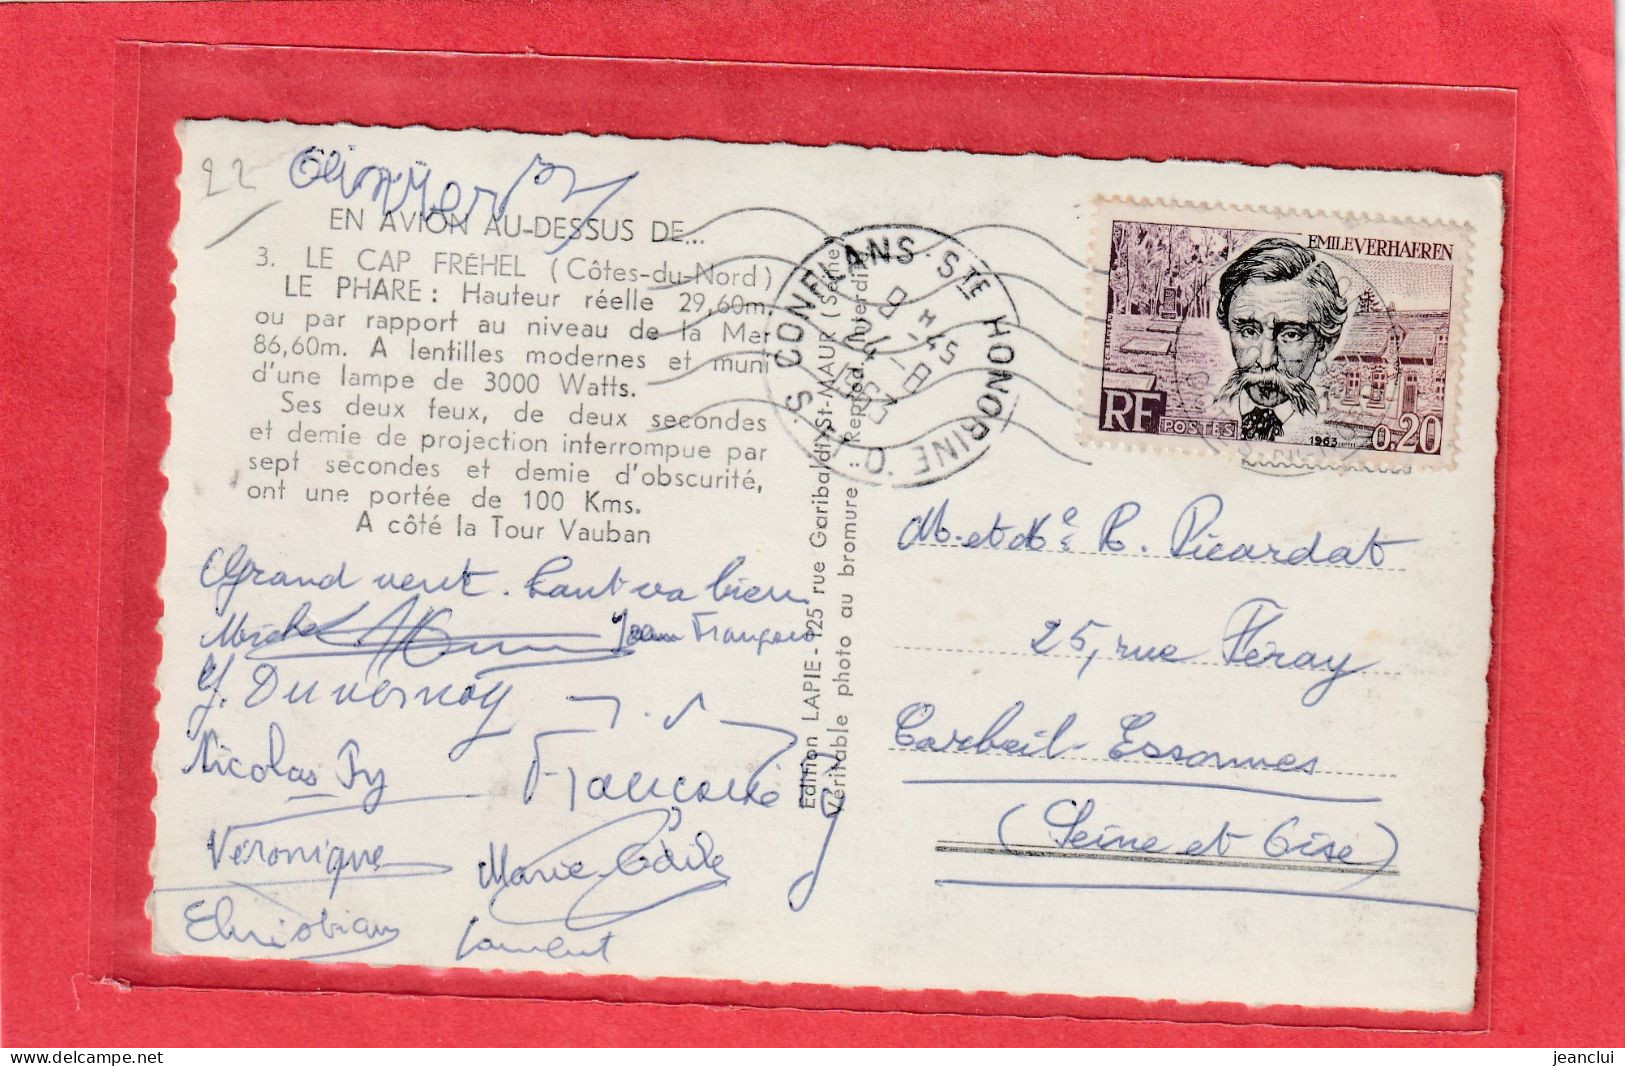 22
Olivier
EN AVION AU-DESSUS DE...
3. LE CAP FRÉHEL (Côtes-du-Nord)
LE PHARE : Hauteur réelle 29,60m.
ou par rapport au niveau de la Mer
86,60m. A lentilles modernes et muni
d'une lampe de 3000 Watts.
Ses deux feux, de deux secondes
et demie de projection interrompue par
sept secondes et demie d'obscurité,
ont une portée de 100 Kms.
A côté la Tour Vauban
Grand vent. Tout va bien
Michel Jean François
Y. Duvernoy
Nicolas Py
Francoise
Véronique Marie-Cécile
Christian Laurent
Edition LAPIE - 125 rue Garibaldi, St-MAUR (Seine)
Véritable photo au bromure : Reprod. Interdite
CONFLANS STE HONORINE
8 H 45
24-8
1963
EMILE VERHAEREN
RF
POSTES
1963
0,20
M. et Me R. Picardat
25, rue Féray
Corbeil-Essonnes
(Seine et Oise)
jeanclui